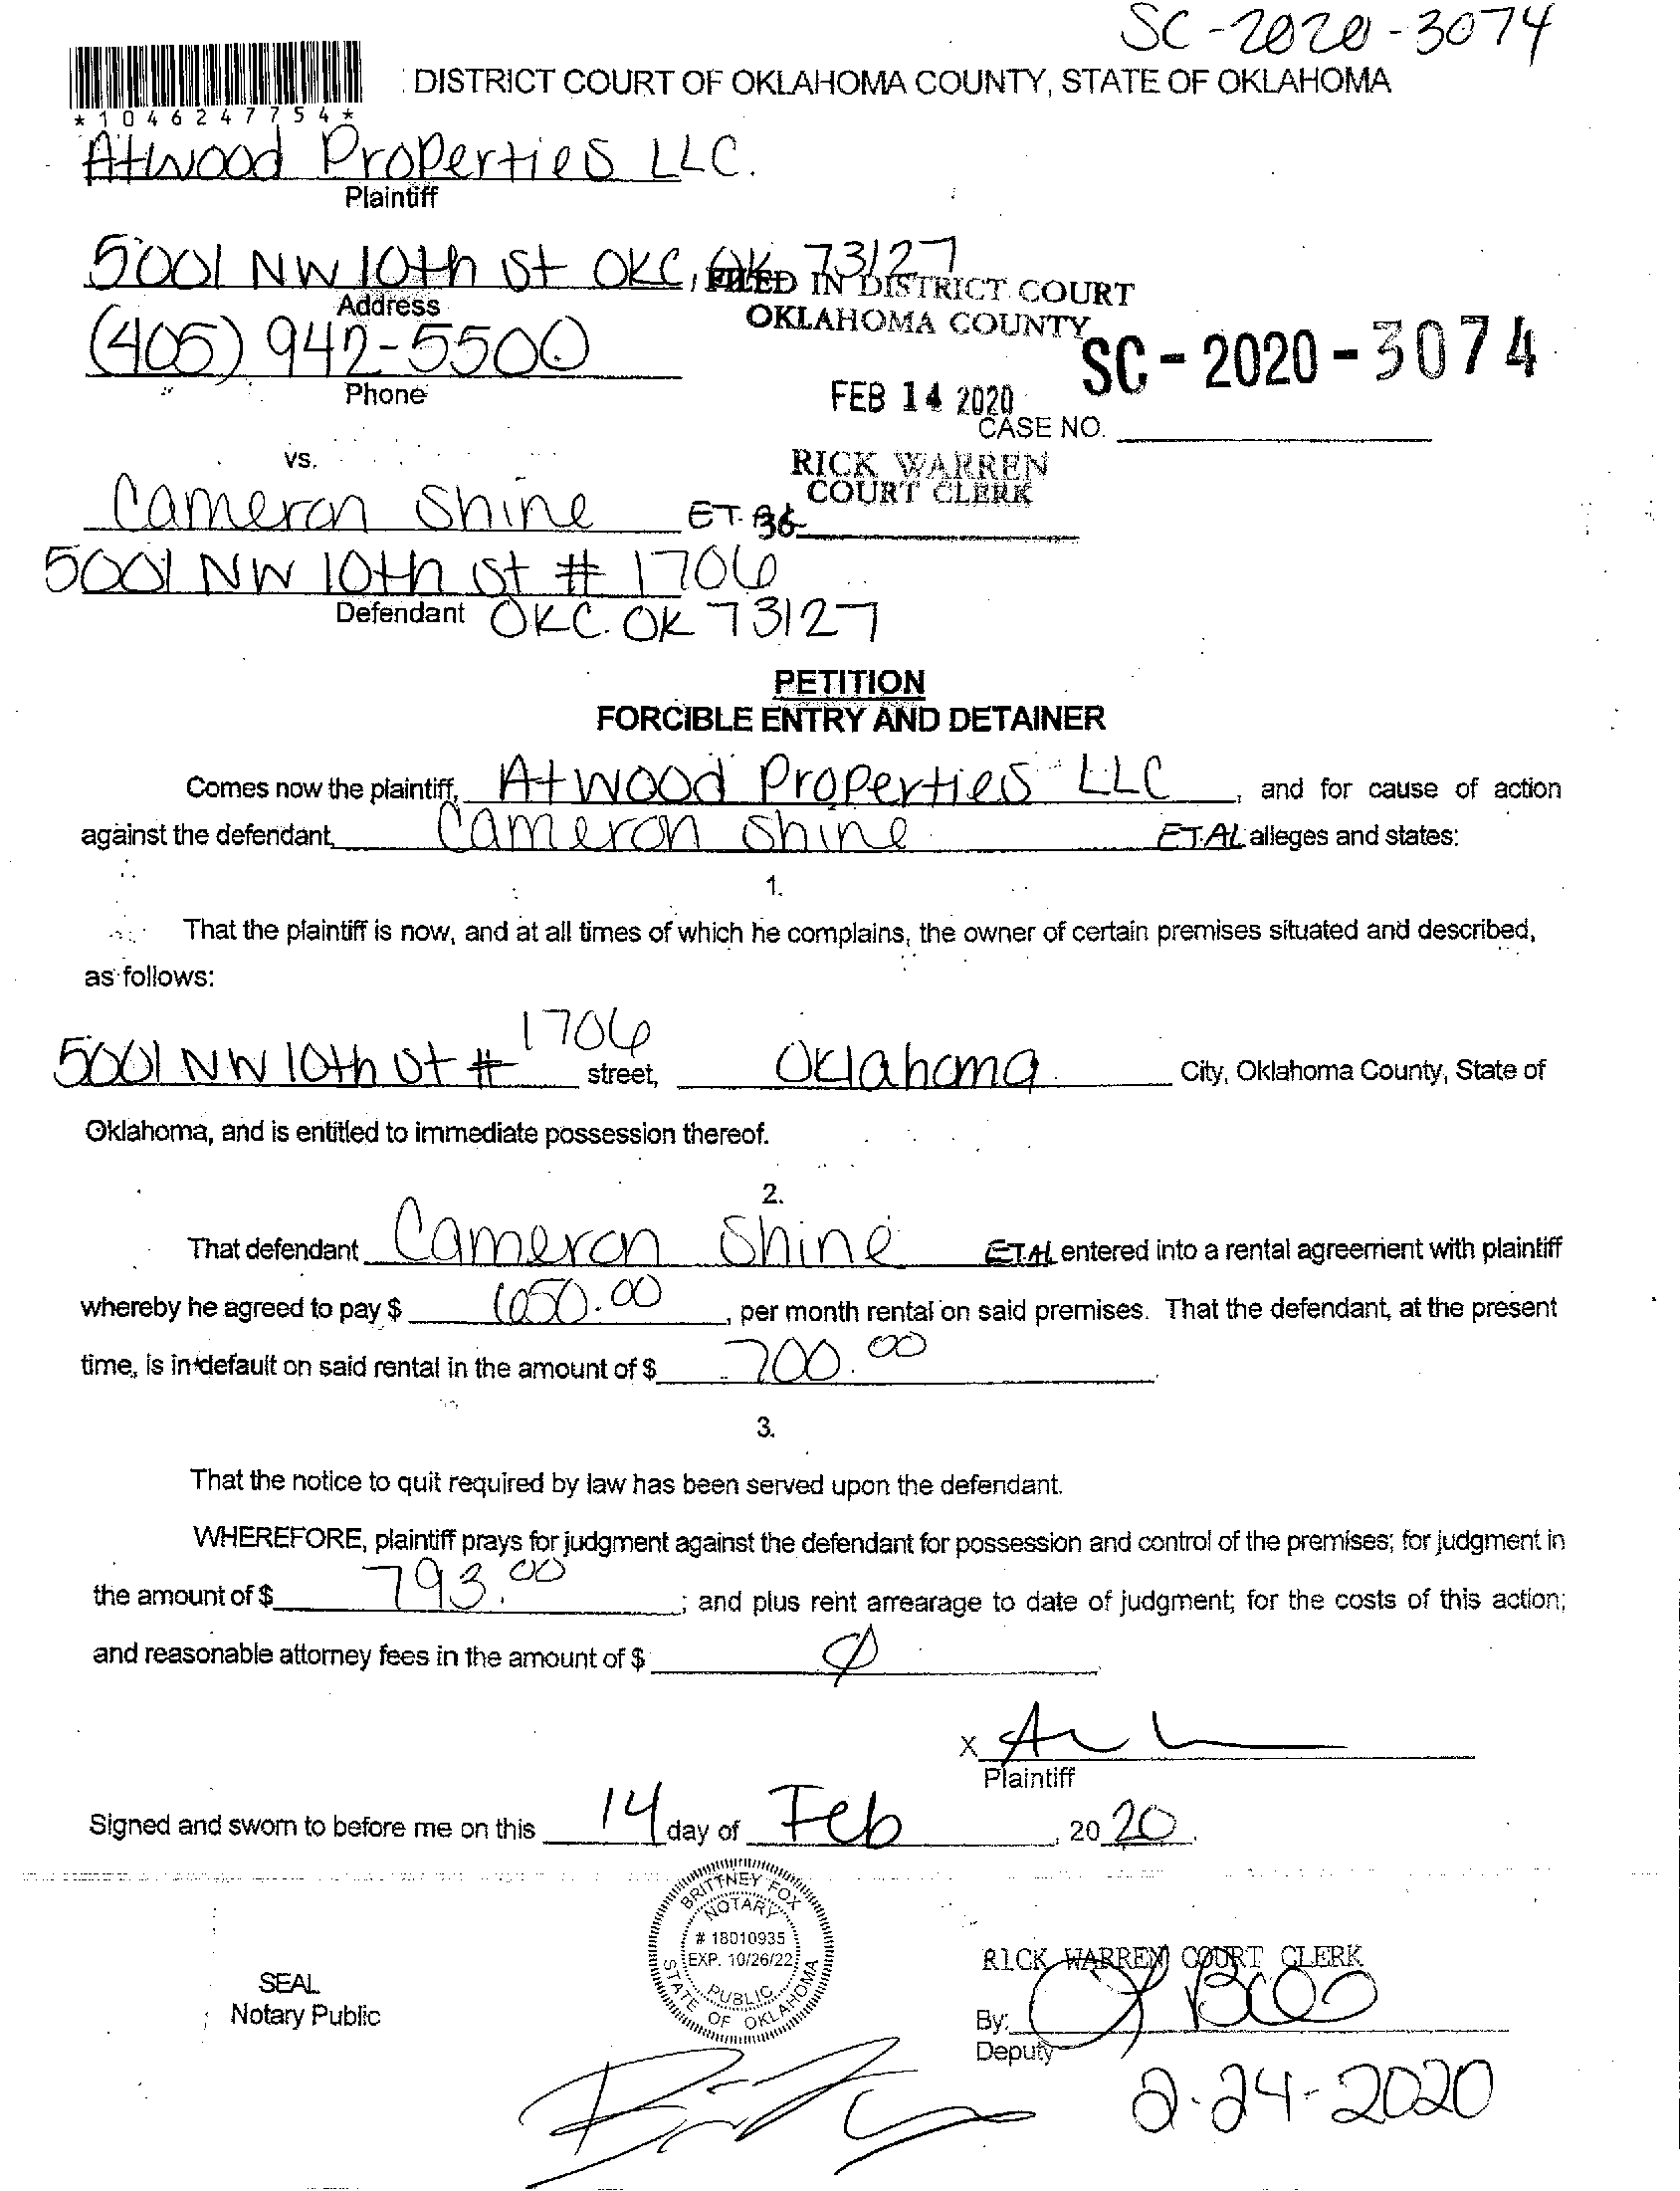 SC-2020-3074
DISTRICT COURT OF OKLAHOMA COUNTY, STATE OF OKLAHOMA
*1046247754*
Atwood Properties LLC.
Plaintiff
5001 NW 10th St OKC, OK 73127
Address
(405) 942-5500
Phone
FILED IN DISTRICT COURT
OKLAHOMA COUNTY
SC-2020-3074
FEB 14 2020
CASE NO.
RICK WARREN
COURT CLERK
vs.
Cameron Shine ET.
5001 NW 10th St # 1706
Defendant OKC. OK 73127
PETITION
FORCIBLE ENTRY AND DETAINER
Comes now the plaintiff, Atwood Properties LLC, and for cause of action
against the defendant, Cameron Shine ET.AL alleges and states:
1.
That the plaintiff is now, and at all times of which he complains, the owner of certain premises situated and described,
as follows:
5001 NW 10th St # 1706 street, Oklahoma City, Oklahoma County, State of
Oklahoma, and is entitled to immediate possession thereof.
2.
That defendant Cameron Shine ET.AL entered into a rental agreement with plaintiff
whereby he agreed to pay $ 650.00, per month rental on said premises. That the defendant, at the present
time, is in default on said rental in the amount of $ 700.00
3.
That the notice to quit required by law has been served upon the defendant.
WHEREFORE, plaintiff prays for judgment against the defendant for possession and control of the premises; for judgment in
the amount of $ 793.00; and plus rent arrearage to date of judgment; for the costs of this action;
and reasonable attorney fees in the amount of $ Ø
X
Plaintiff
Signed and sworn to before me on this 14 day of Feb, 2020.
BRITTNEY FOX
NOTARY
# 18010935
EXP. 10/26/22
PUBLIC
STATE OF OKLAHOMA
SEAL
Notary Public
RICK WARREN COURT CLERK
By:
Deputy
2-24-2020